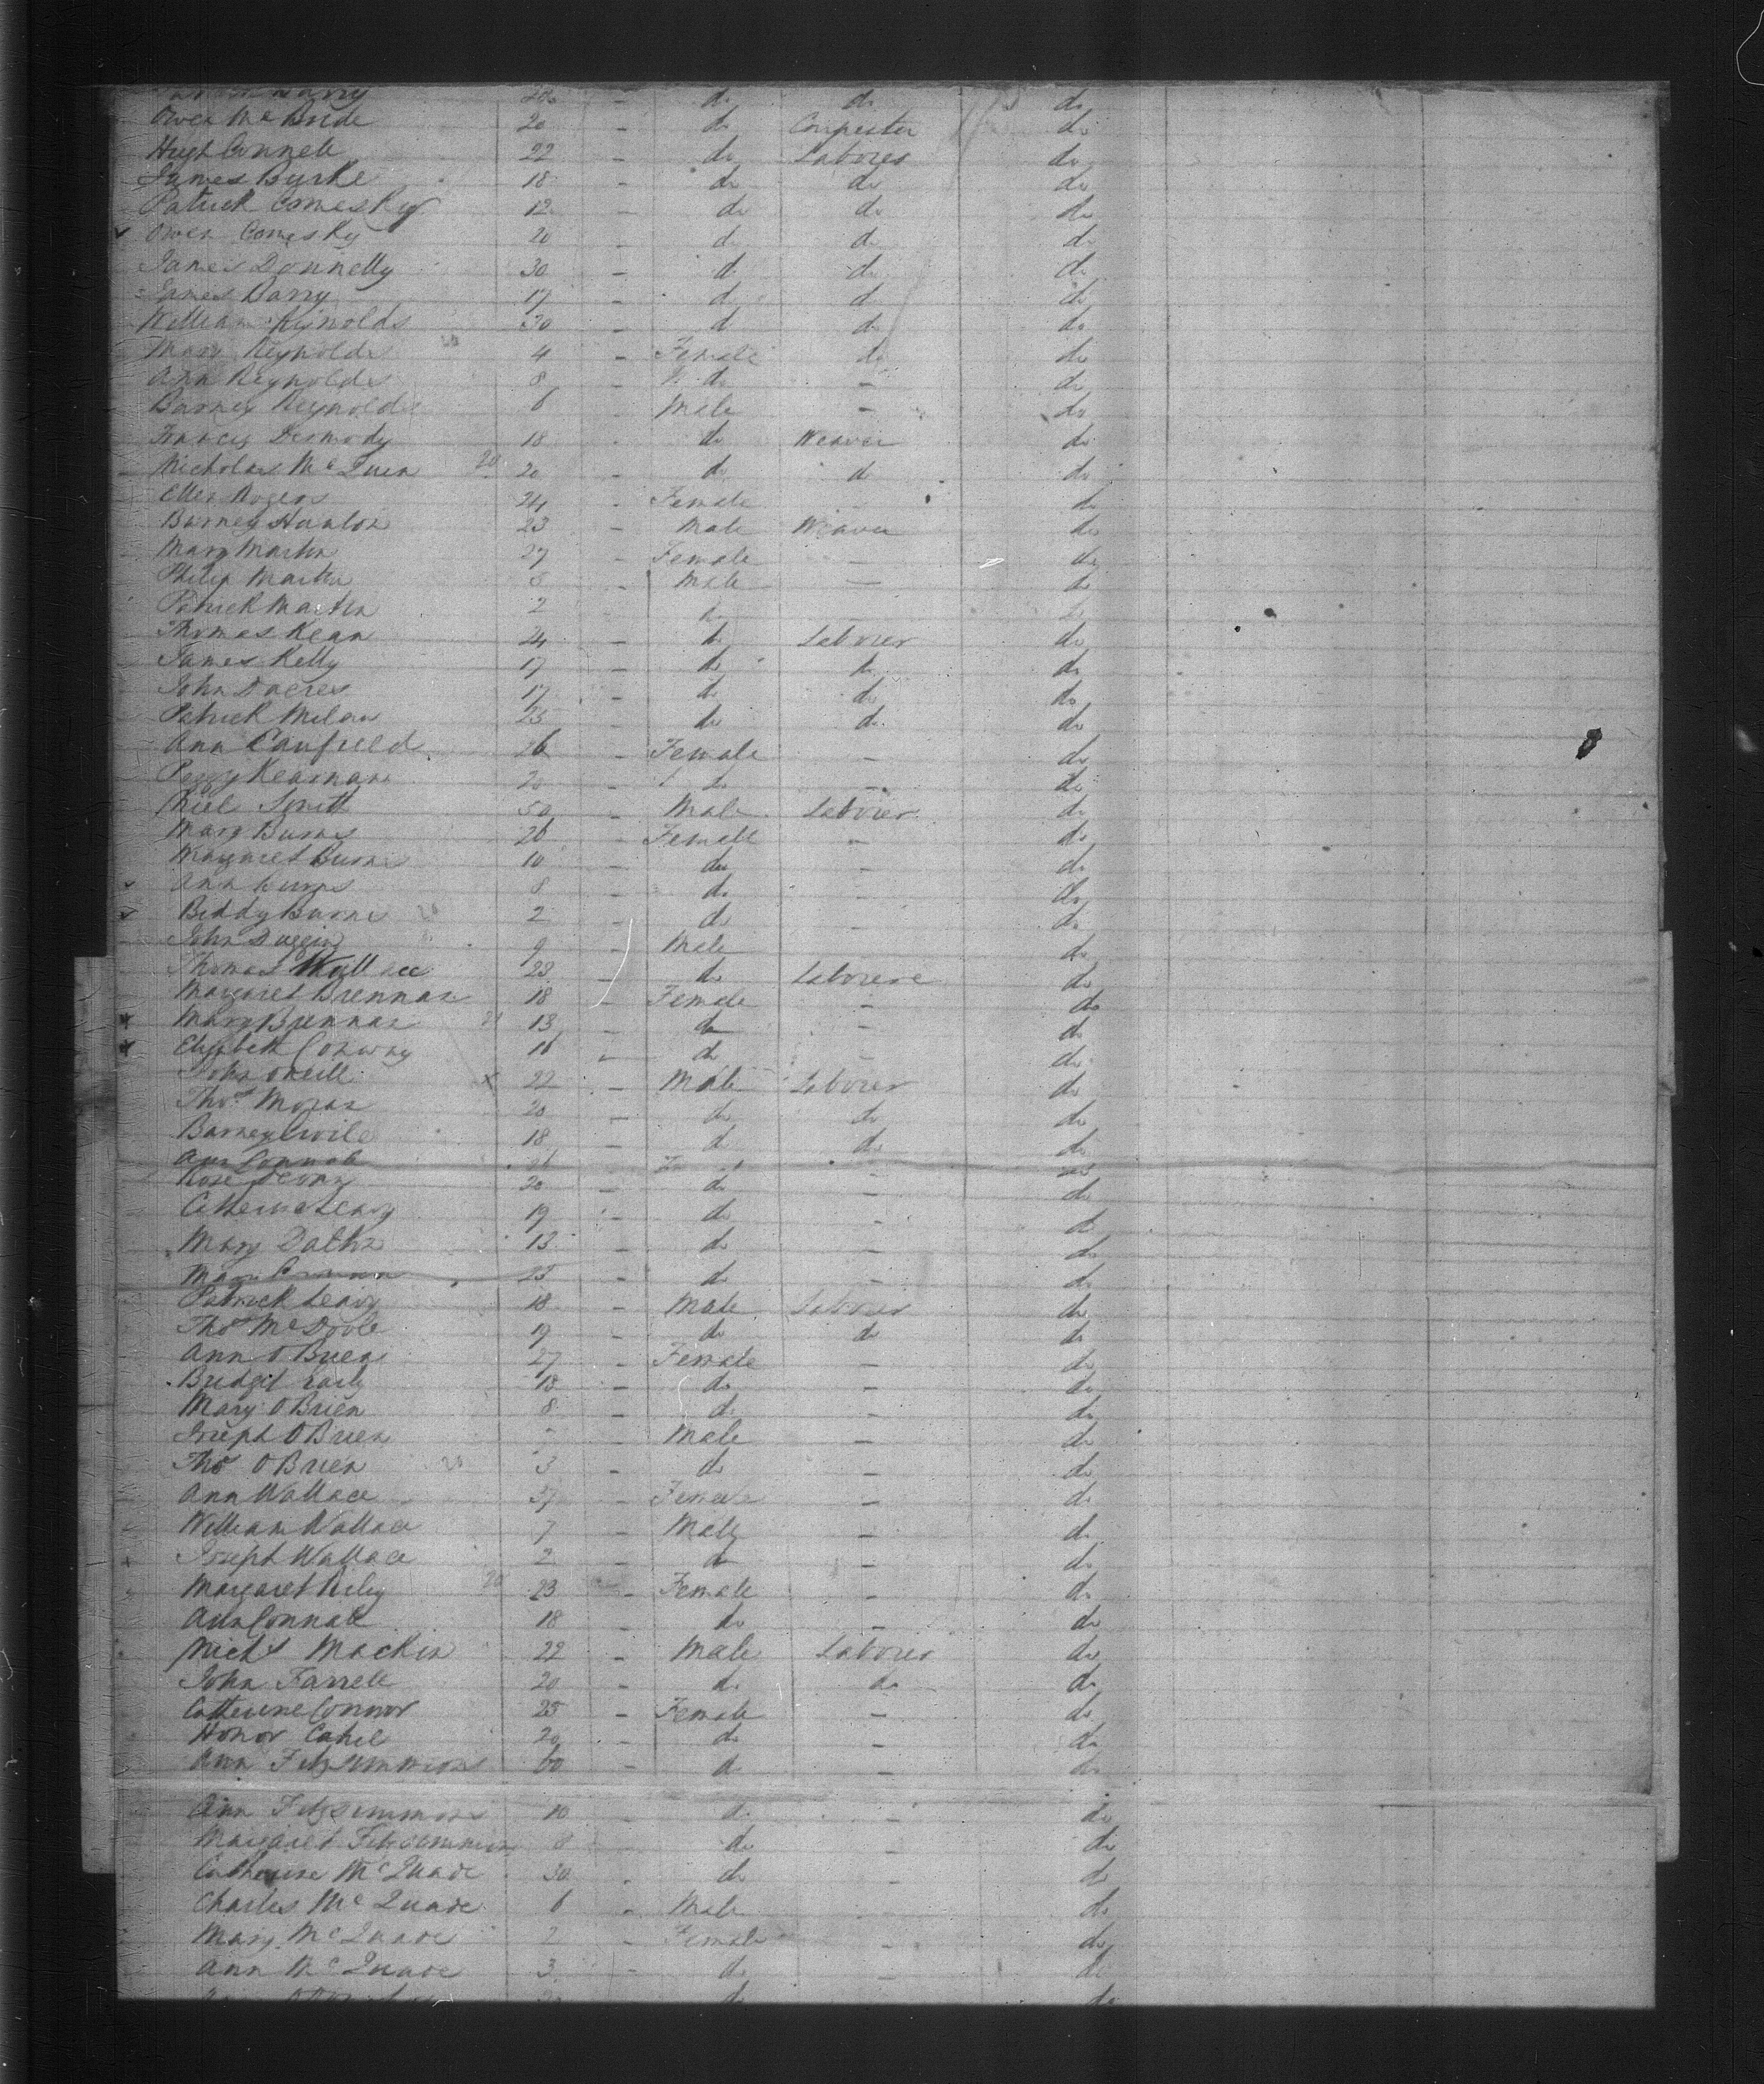 Barry 20 - do do do
Owen McBride 20 - do Carpenter do
Hugh Connell 22 - do Laborer do
James Burke 18 - do do do
Patrick Comesky 12 - do do do
Owen Comesky 20 - do do do
James Donnelly 30 - do do do
James Barry 17 - do do do
William Reynolds 30 - do do do
Mary Reynolds 4 - Female do do
Ann Reynolds 8 - do - do
Barney Reynolds 6 - Male - do
Francis Dermody 18 - do Weaver do
Nicholas McQuen 20 20 - do do do
Ellen Rogers 24 - Female - do
Barney Hanlon 23 - Male Weaver do
Mary Martin 27 - Female - do
Philip Martin - Male - do
Patrick Martin 2 do do
Thomas Kean 24 - do Laborer do
James Kelly 17 - do do do
John Dacres 17 - do do do
Patrick Milan 25 - do do do
Ann Caufield 26 - Female - do
Peggy Kearnan 20 - do - do
Niel Smith 50 - Male Laborer do
Mary Burns 26 - Female - do
Margaret Burns 10 - do - do
Ann Burns 8 - do - do
Biddy Burns 20 2 - do - do
John Duggin 9 - Male do
Thomas Wallace 23 - do Laborer do
Margaret Brennan 18 - Female - do
Mary Brennan 13 - do - do
Elizabeth Conway 16 - do - do
John ONeill 22 - Male Laborer do
Thos Moran 20 - do do do
Barney 18 - do do do
Ann Connole - do
Rose 20 - do - do
Catherine Leavy 19 - do - do
Mary Dalton 13 - do - do
Mary 25 - do - do
Patrick Leavy 18 - Male Laborer do
Thos McDoole 19 - do do do
Ann OBrien 27 - Female - do
Bridget Early 18 - do - do
Mary OBrien 8 - do - do
Joseph OBrien - Male - do
Thos OBrien 20 3 - do - do
Ann Wallace 37 - Female - do
William Wallace 7 - Male - do
Joseph Wallace 2 - do - do
Margaret Riley 20 23 - Female - do
Ann Connole 18 - do - do
Michl Mackin 22 - Male Laborer do
John Farrell 20 - do do do
Catherine Connor 25 - Female - do
Honor Cahil 20 - do - do
Ann Fitzsimmons 60 - do - do
Ann Fitzsimmons 10 - do - do
Margaret Fitzsimmons 8 - do do
Catherine McQuade 30 - do - do
Charles McQuade 6 - Male - do
Mary McQuade - Female - do
Ann McQuade 3 - do - do
do do